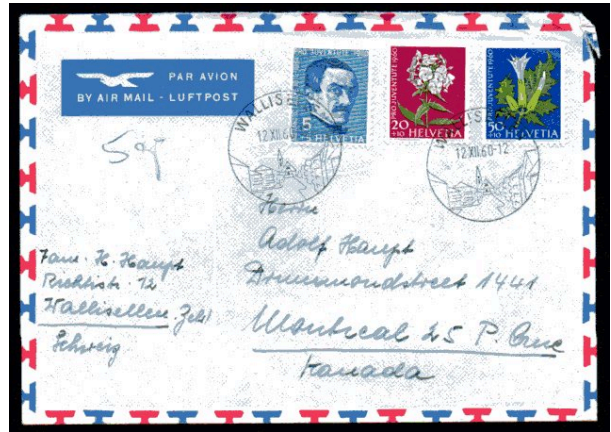 PAR AVION
BY AIR MAIL - LUFTPOST
PRO JUVENTUTE 1960
5
HELVETIA
PRO JUVENTUTE 1960
20
+10 HELVETIA
PRO JUVENTUTE 1960
50
+10 HELVETIA
WALLISE
12.XII.60
WALLIS
12.XII.60-12
Herrn
Adolf Haupt
Drummondstreet 1441
Montreal 25 P. Que
Kanada
Fam. H. Haupt
12
Wallisellen
Schweiz